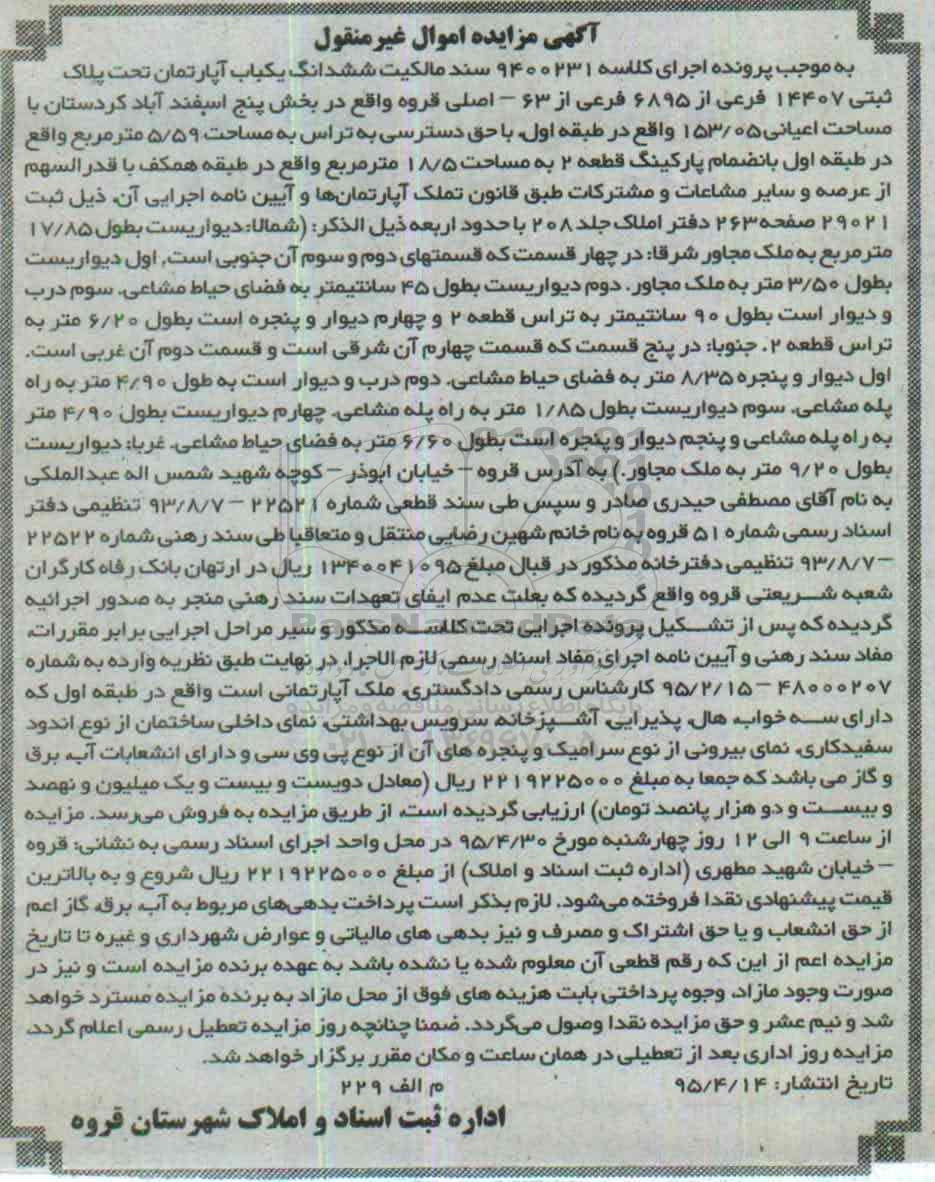 آگهی مزایده اموال غیرمنقول
به موجب پرونده اجرای کلاسه ۹۴۰۰۲۳۱ سند مالکیت ششدانگ یکباب آپارتمان تحت پلاک
ثبتی ۱۴۴۰۷ فرعی از ۶۸۹۵ فرعی از ۶۳ – اصلی قروه واقع در بخش پنج اسفند آباد کردستان با
مساحت اعیانی ۱۵۳/۰۵ واقع در طبقه اول، با حق دسترسی به تراس به مساحت ۵/۵۹ مترمربع واقع
در طبقه اول بانضمام پارکینگ قطعه ۲ به مساحت ۱۸/۵ مترمربع واقع در طبقه همکف با قدرالسهم
از عرصه و سایر مشاعات و مشترکات طبق قانون تملک آپارتمان‌ها و آیین نامه اجرایی آن، ذیل ثبت
۲۹۰۲۱ صفحه ۲۶۳ دفتر املاک جلد ۲۰۸ با حدود اربعه ذیل الذکر: (شمالا: دیواریست بطول ۱۷/۸۵
مترمربع به ملک مجاور شرقا: در چهار قسمت که قسمتهای دوم و سوم آن جنوبی است، اول دیواریست
بطول ۳/۵۰ متر به ملک مجاور. دوم دیواریست بطول ۴۵ سانتیمتر به فضای حیاط مشاعی. سوم درب
و دیوار است بطول ۹۰ سانتیمتر به تراس قطعه ۲ و چهارم دیوار و پنجره است بطول ۶/۲۰ متر به
تراس قطعه ۲. جنوبا: در پنج قسمت که قسمت چهارم آن شرقی است و قسمت دوم آن غربی است.
اول دیوار و پنجره ۸/۳۵ متر به فضای حیاط مشاعی. دوم درب و دیوار است به طول ۴/۹۰ متر به راه
پله مشاعی. سوم دیواریست بطول ۱/۸۵ متر به راه پله مشاعی. چهارم دیواریست بطول ۴/۹۰ متر
به راه پله مشاعی و پنجم دیوار و پنجره است بطول ۶/۶۰ متر به فضای حیاط مشاعی. غربا: دیواریست
بطول ۹/۲۰ متر به ملک مجاور.) به آدرس قروه – خیابان ابوذر – کوچه شهید شمس اله عبدالملکی
به نام آقای مصطفی حیدری صادر و سپس طی سند قطعی شماره ۲۲۵۲۱ – ۹۳/۸/۷ تنظیمی دفتر
اسناد رسمی شماره ۵۱ قروه به نام خانم شهین رضایی منتقل و متعاقبا طی سند رهنی شماره ۲۲۵۲۲
– ۹۳/۸/۷ تنظیمی دفترخانه مذکور در قبال مبلغ ۱۳۴۰۰۴۱۰۹۵ ریال در ارتهان بانک رفاه کارگران
شعبه شریعتی قروه واقع گردیده که بعلت عدم ایفای تعهدات سند رهنی منجر به صدور اجرائیه
گردیده که پس از تشکیل پرونده اجرایی تحت کلاسه مذکور و سیر مراحل اجرایی برابر مقررات،
مفاد سند رهنی و آیین نامه اجرای مفاد اسناد رسمی لازم الاجرا، در نهایت طبق نظریه وارده به شماره
۴۸۰۰۰۲۰۷ – ۹۵/۲/۱۵ کارشناس رسمی دادگستری، ملک آپارتمانی است واقع در طبقه اول که
دارای سه خواب، هال، پذیرایی، آشپزخانه، سرویس بهداشتی، نمای داخلی ساختمان از نوع اندود
سفیدکاری، نمای بیرونی از نوع سرامیک و پنجره های آن از نوع پی وی سی و دارای انشعابات آب، برق
و گاز می باشد که جمعا به مبلغ ۲۲۱۹۲۲۵۰۰۰ ریال (معادل دویست و بیست و یک میلیون و نهصد
و بیست و دو هزار پانصد تومان) ارزیابی گردیده است، از طریق مزایده به فروش می‌رسد. مزایده
از ساعت ۹ الی ۱۲ روز چهارشنبه مورخ ۹۵/۴/۳۰ در محل واحد اجرای اسناد رسمی به نشانی: قروه
– خیابان شهید مطهری (اداره ثبت اسناد و املاک) از مبلغ ۲۲۱۹۲۲۵۰۰۰ ریال شروع و به بالاترین
قیمت پیشنهادی نقدا فروخته می‌شود. لازم بذکر است پرداخت بدهی‌های مربوط به آب، برق، گاز اعم
از حق انشعاب و یا حق اشتراک و مصرف و نیز بدهی های مالیاتی و عوارض شهرداری و غیره تا تاریخ
مزایده اعم از این که رقم قطعی آن معلوم شده یا نشده باشد به عهده برنده مزایده است و نیز در
صورت وجود مازاد، وجوه پرداختی بابت هزینه های فوق از محل مازاد به برنده مزایده مسترد خواهد
شد و نیم عشر و حق مزایده نقدا وصول می‌گردد. ضمنا چنانچه روز مزایده تعطیل رسمی اعلام گردد،
مزایده روز اداری بعد از تعطیلی در همان ساعت و مکان مقرر برگزار خواهد شد.
تاریخ انتشار: ۹۵/۴/۱۴ م الف ۲۲۹
اداره ثبت اسناد و املاک شهرستان قروه